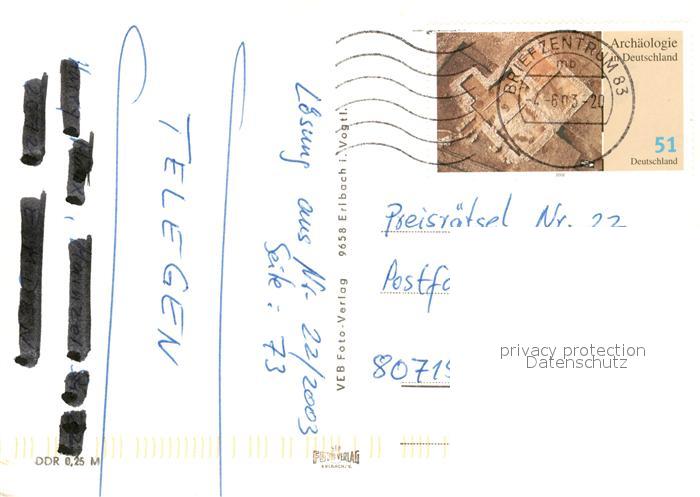 Archäologie
in Deutschland
51
Deutschland
BRIEFZENTRUM 83
mb
-4.-6.03-20
Preisrätsel Nr. 22
Postfa
80719
privacy protection
Datenschutz
TELEGEN
Lösung aus Nr. 22/2003
Seite: 73
VEB Foto-Verlag 9658 Erlbach i. Vogtl.
DDR 0,25 M
FOTO VERLAG
ERLBACH/V.